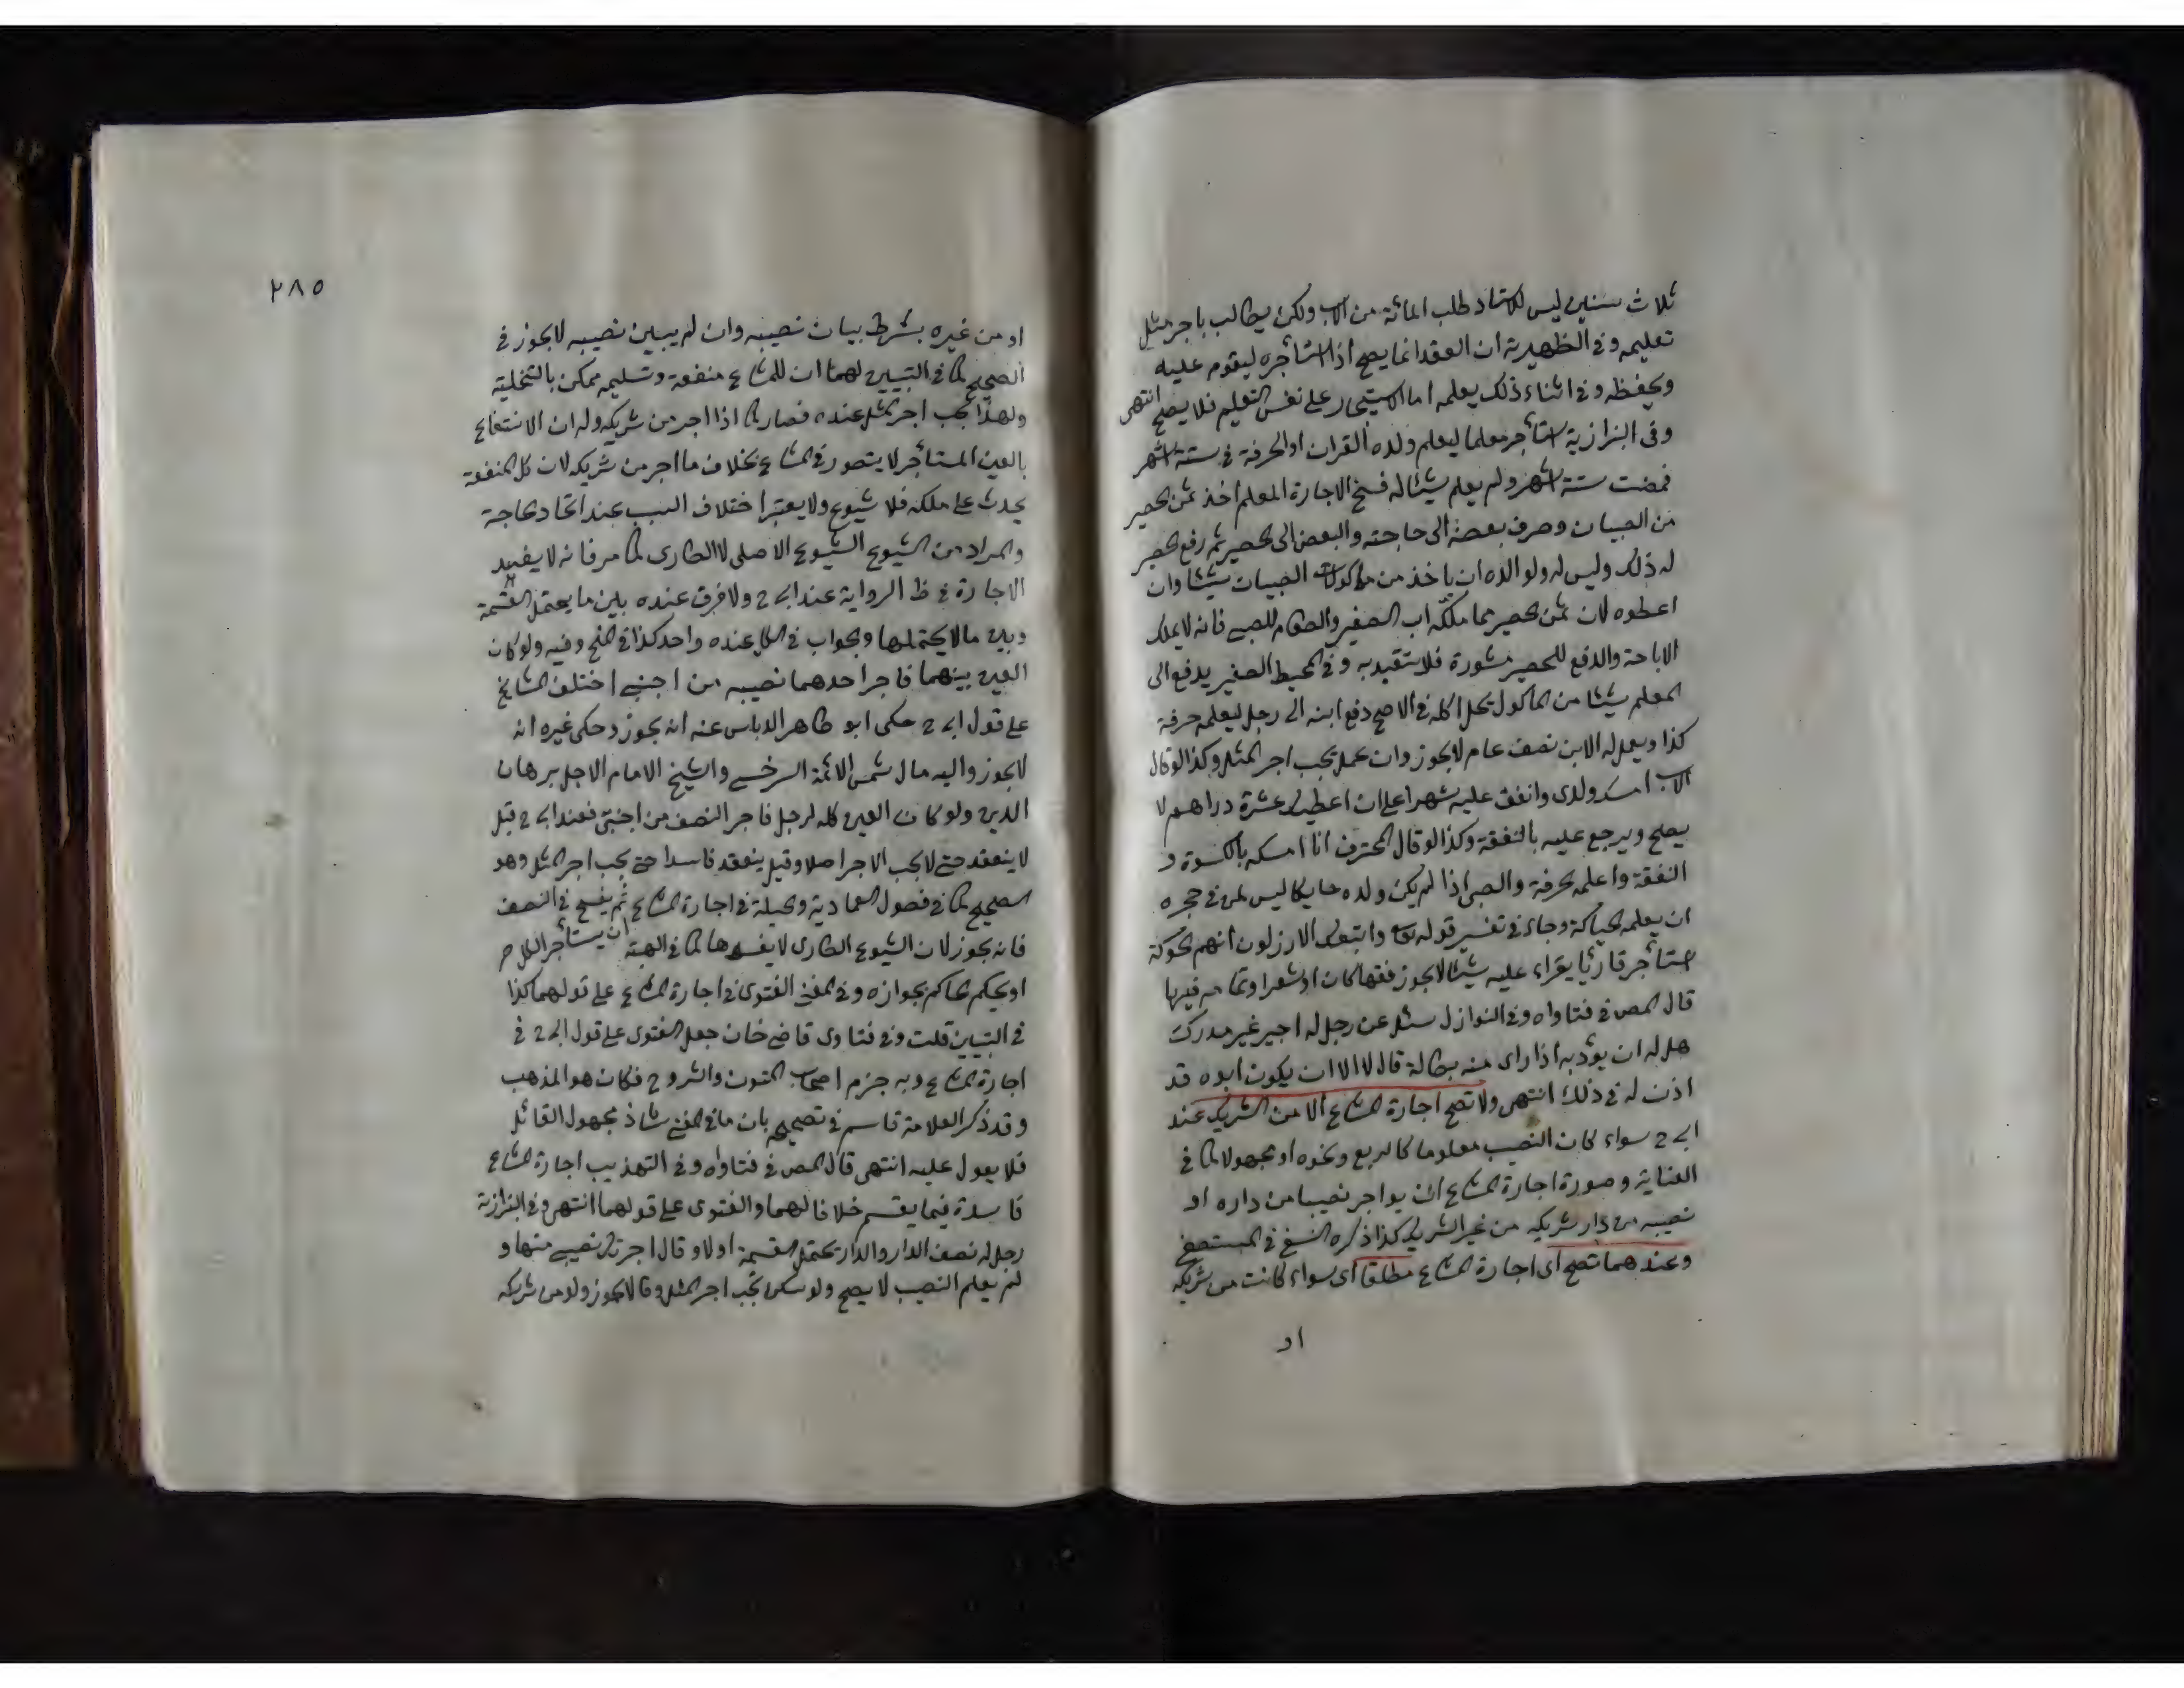 ثلاث سنين ليس للاستاد طلب المائة من الاب ولكن يطالب باجر مثل
تعليمه وفى الظهيرية ان العقد انما يصح اذا استأجره ليقوم عليه
ويحفظه وفى اثناء ذلك يعلمه اما الاستيجار على نفس التعليم فلا يصح انتهى
وفى البزازية استأجر معلما ليعلم ولده القران او الحرفة فى ستة اشهر
فمضت ستة اشهر ولم يعلم شيئا له فسخ الاجارة المعلم اخذ ثمن الحصير
من الصبيان وصرف بعضه الى حاجته والبعض الى الحصير ثم رفع الحصير
له ذلك وليس له ولوالده ان ياخذ من ماكولات الصبيان شيئا وان
اعطوه لان ثمن الحصير مما ملكه اب الصغير والطعام للصبى فانه لا يملك
الاباحة والدفع للحصير مشورة فلا يتقيد به وفى المحيط الصغير يدفع الى
المعلم شيئا من الماكول يحل اكله فى الاصح دفع ابنه الى رجل ليعلمه حرفة
كذا ويعمل له الابن نصف عام لا يجوز وان عمل يجب اجر المثل وكذا لو قال
الاب امسك ولدى وانفق عليه شهرا على ان اعطيك عشرة دراهم لا
يصح ويرجع عليه بالنفقة وكذا لو قال المحترف انا امسكه بالكسوة و
النفقة واعلمه الحرفة والصبى اذا لم يكن ولده حايكا ليس لمن فى حجره
ان يعلمه الحياكة وجاء فى تفسير قوله تعالى واتبعك الارذلون انهم الحوكة
استأجر قارئا يقراء عليه شيئا لا يجوز فقها كان او شعرا وتمامه فيها
قال المص فى فتاواه وفى النوازل سئل عن رجل له اجير غير مدرك
هل له ان يؤدبه اذا راى منه بطالة قال لا الا ان يكون ابوه قد
اذن له فى ذلك انتهى ولا تصح اجارة المشاع الا من الشريك عند
ابى ح سواء كان النصيب معلوما كالربع ونحوه او مجهولا كما فى
العناية وصورة اجارة المشاع ان يواجر نصيبا من داره او
نصيبه من دار شريكه من غير الشريك كذا ذكره النسفى فى المستصفى
وعندهما تصح اى اجارة المشاع مطلقا اى سواء كانت من شريكه
او
٢٨٥
او من غيره بشرط بيان نصيبه وان لم يبين نصيبه لا يجوز فى
الصحيح كما فى التبيين لهما ان للمشاع منفعة وتسليمه ممكن بالتخلية
ولهذا يجب اجر المثل عنده فصار كما اذا اجر من شريكه وله ان الانتفاع
بالعين المستأجر لا يتصور فى المشاع بخلاف ما اجر من شريكه لان كل المنفعة
يحدث على ملكه فلا شيوع ولا يعتبر اختلاف السبب عند اتحاد الحاجة
والمراد من الشيوع الشيوع الاصلى لا الطارى كما مر فانه لا يفسد
الاجارة فى ظ الرواية عند ابى ح ولا فرق عنده بين ما يحتمل القسمة
وبين ما لا يحتملها والجواب فى الكل عنده واحد كذا فى المنح وفيه ولو كان
العين بينهما فاجر احدهما نصيبه من اجنبى اختلف المشايخ
على قول ابى ح حكى ابو طاهر الدباس عنه انه يجوز وحكى غيره انه
لا يجوز واليه مال شمس الائمة السرخسى والشيخ الامام الاجل برهان
الدين ولو كان العين كله لرجل فاجر النصف من اجنبى فعند ابى ح قيل
لا ينعقد حتى لا يجب الاجر اصلا وقيل ينعقد فاسدا حتى يجب اجر المثل وهو
الصحيح كما فى فصول العمادية والحيلة فى اجارة المشاع ان يستأجر الكل ثم يفسخ فى النصف
فانه يجوز لان الشيوع الطارى لا يفسدها كما فى الهبة
او يحكم الحاكم بجوازه وفى المغنى الفتوى فى اجارة المشاع على قولهما كذا
فى التبيين قلت وفى فتاوى قاضى خان جعل الفتوى على قول ابى ح فى
اجارة المشاع وبه جزم اصحاب المتون والشروح فكان هو المذهب
وقد ذكر العلامة قاسم فى تصحيحه بان ما فى المغنى شاذ مجهول القائل
فلا يعول عليه انتهى قال المص فى فتاواه وفى التهذيب اجارة المشاع
فاسدة فيما يقسم خلافا لهما والفتوى على قولهما انتهى وفى البزازية
رجل له نصف الدار والدار تحتمل القسمة اولا وقال اجرتك نصيبى منها و
لم يعلم النصيب لا يصح ولو سكن يجب اجر المثل وقالا يجوز ولو من شريكه